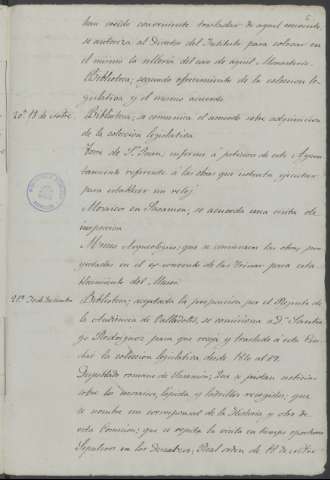 han creido conveniente trasladar de aquel convento,
se autoriza al Director del Instituto para colocar en
el mismo la silleria del coro de aquel Monasterio.
Biblioteca; segundo ofrecimiento de la coleccion le-
gislativa y el mismo acuerdo
Biblioteca; se comunica el acuerdo sobre adquisicion
de la coleccion legislativa
Torre de Sn. Juan, informe á peticion de este Ayun-
tamiento referente á las obras que intenta ejecutar
para establecer un reloj
Mosaico en Sasamon; se acuerda una visita de
inspeccion
Museo Arqueologico; que se comiencen las obras pro-
yectadas en el ex-convento de las Trinas para esta-
blecimiento del Museo
Biblioteca; aceptada la proposicion por el Regente de
la Audiencia de Valladolid, se comisiona á Dn. Santia-
go Rodriguez para que recoja y traslade á esta
la coleccion legislativa desde 1810 al 59.
Despoblado romano de Sasamón; Que se pidan noticias
sobre los mosaicos, lapida y ladrillos recogidos; que
se nombre un corresponsal de la Historia y otro de
esta Comision; que se repita la visita en tiempo oportuno
Sepulcros en los Real orden de 18 de